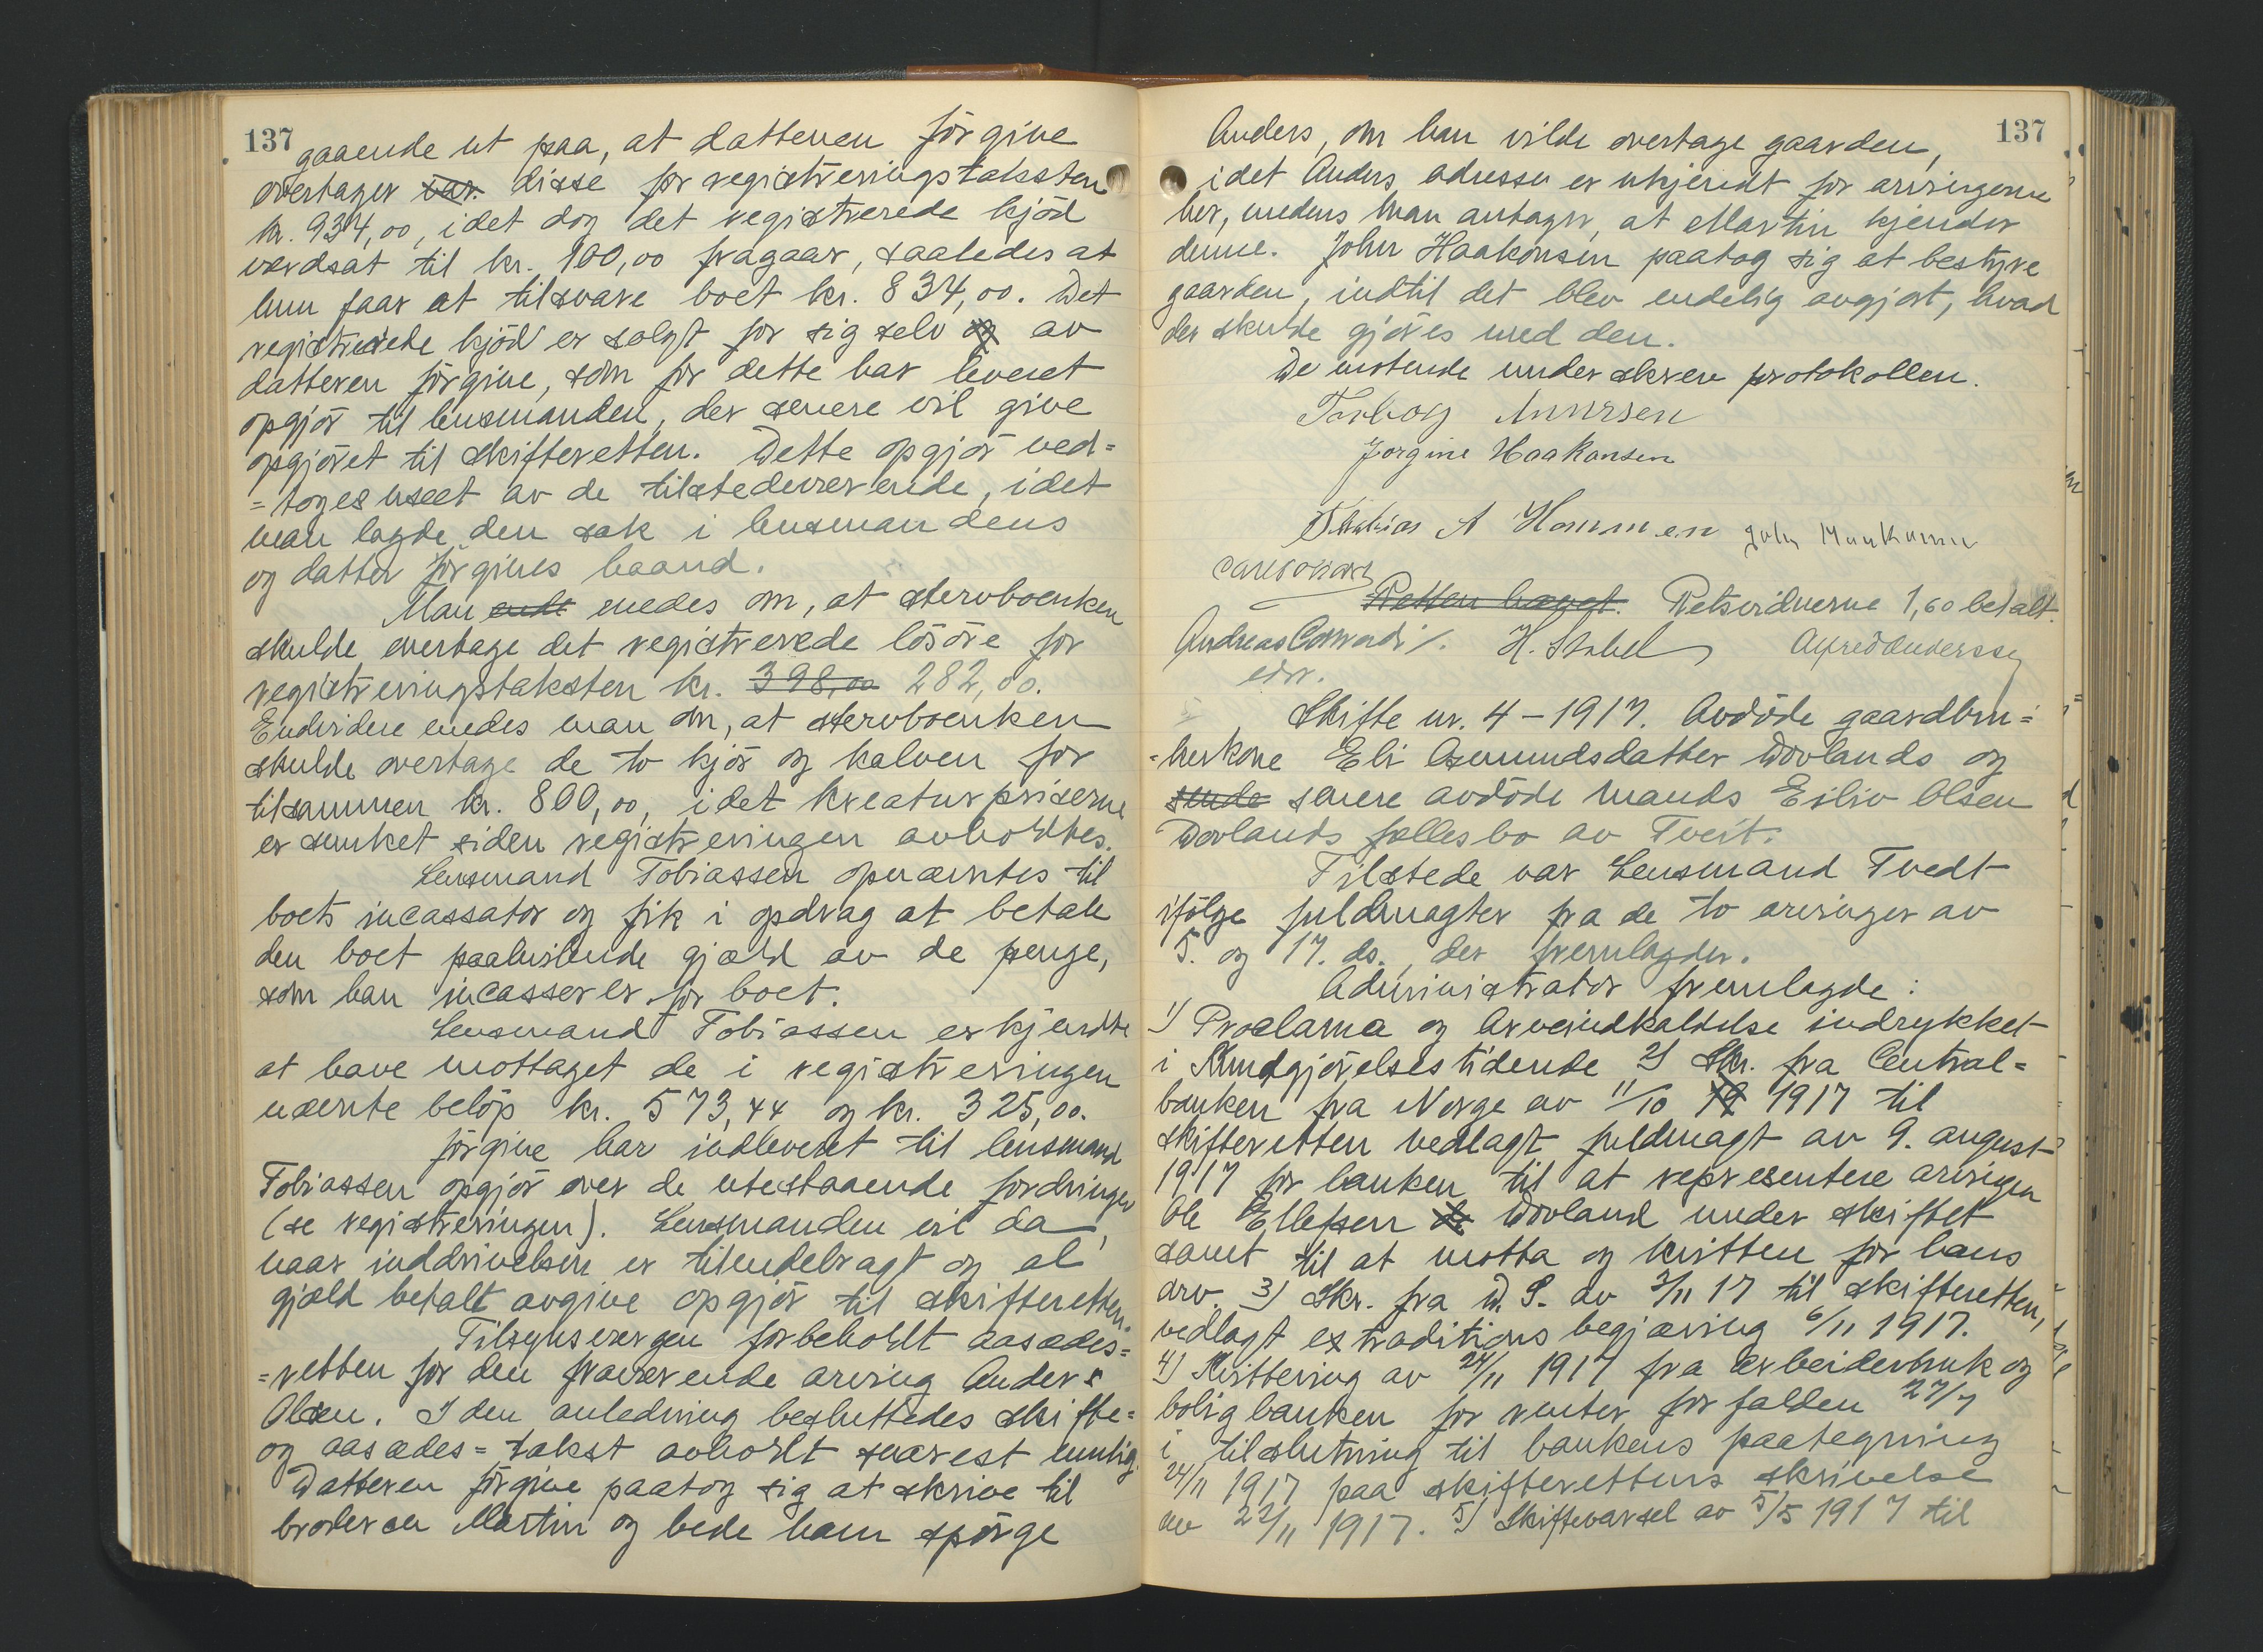 137
gaaende ut paa, at datteren Jörgine
overtager var disse for registreringstaksten
kr. 934,00, idet dog det registrerede kjöd
værdsat til kr. 100,00 fragaar, saaledes at
hun faar at tilsvare boet kr. 834,00. Det
registrerede kjöd er solgt for sig selv og av
datteren Jörgine, som for dette har leveret
opgjör til lensmanden, der senere vil give
opgjöret til skifteretten. Dette opgjör ved=
=toges uset av de tilstedeværende, idet
man lagde den sak i lensmandens
og datter Jörgines haand.
Man ende enedes om, at stervboenken
skulde overtage det registrerede lösöre for
registreringstaksten kr. 398,00 282,00.
Endvidere enedes man om, at stervboenken
skulde overtage de to kjör og kalven for
tilsammen kr. 800,00, idet kreaturpriserne
er sunket siden registreringen avholdtes.
Lensmand Tobiassen opnævntes til
boets incassator og fik i opdrag at betale
den boet paahvilende gjæld av de penge,
som han incasserer for boet.
Lensmand Tobiassen erkjendte
at have mottaget de i registreringen
nævnte belöp kr. 573,44 og kr. 325,00.
Jörgine har indleveret til lensmand
Tobiassen opgjör over de utestaaende fordringer
(se registreringen). Lensmanden vil da,
naar inddrivelsen er tilendebragt og al
gjæld betalt avgive opgjör til skifteretten.
Tilsynsvergen forbeholdt aasædes=
=retten for den fraværende arving Anders
Olsen. I den anledning besluttedes skifte=
og aasædes=takst avholdt snarest mulig.
Datteren Jörgine paatog sig at skrive til
broderen Martin og bede ham spörge
137
Anders, om han vilde overtage gaarden,
idet Anders adresse er ukjendt for arvingerne
her, medens man antager, at Martin kjender
denne. John Haakonsen paatog sig at bestyre
gaarden, indtil det blev endelig avgjort, hvad
der skulde gjöres med den.
De mötende underskrev protokollen.
Torborg
Jorgine Haakonsen
A Hommen John
Retten hævet. Retsvidnerne 1,60 betalt.
Andreas H. Stabel Alfred Anderssen
edsv.
Skifte nr. 4 – 1917. Avdöde gaardbru=
=kerkone Eli Asmundsdatter Dovlands og
sende senere avdöde mands Eiliv Olsen
Dovlands fællesbo av Tveit.
Tilstede var Lensmand Tvedt
ifölge fuldmagter fra de to arvinger av
5. og 17. ds., der fremlagdes.
Administrator fremlagde:
1) Proclama og Arveindkaldelse indrykket
i Kundgjörelsestidende 2) Skr. fra Central=
banken fra Norge av 11/10 19 1917 til
skifteretten vedlagt fuldmagt av 9. august
1917 for banken til at repræsentere arvingen
Ole Ellefsen Dovland under skiftet
samt til at motta og kvittere for hans
arv. 3) Skr. fra D. S. av 3/11 17 til skifteretten,
vedlagt extraditions begjæring 6/11 1917.
4) Kvittering av 24/11 1917 fra Arbeiderbruk og
boligbanken for renter forfalden 27/7
i tilslutning til bankens paategning
24/11 1917 paa skifterettens skrivelse
av 22/11 1917. 5) Skiftevarsel av 5/5 1917 til